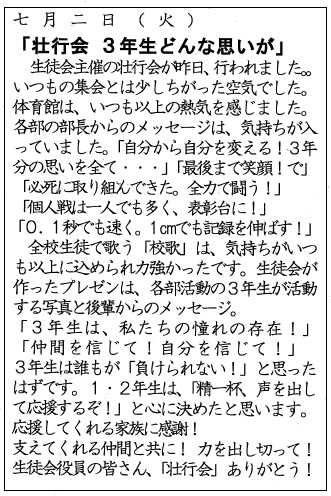 七月二日(火)
「壮行会 3年生どんな思いが」
生徒会主催の壮行会が昨日、行われました。。
いつもの集会とは少しちがった空気でした。
体育館は、いつも以上の熱気を感じました。
各部の部長からのメッセージは、気持ちが入
っていました。「自分から自分を変える!3年
分の思いを全て・・・」「最後まで笑顔!で」
「必死に取り組んできた。全力で闘う!」
「個人戦は一人でも多く、表彰台に!」
「0.1秒でも速く。1㎝でも記録を伸ばす!」
全校生徒で歌う「校歌」は、気持ちがいつ
も以上に込められ力強かったです。生徒会が
作ったプレゼンは、各部活動の3年生が活動
する写真と後輩からのメッセージ。
「3年生は、私たちの憧れの存在!」
「仲間を信じて!自分を信じて!」
3年生は誰もが「負けられない!」と思った
はずです。1・2年生は、「精一杯、声を出し
て応援するぞ!」と心に決めたと思います。
応援してくれる家族に感謝!
支えてくれる仲間と共に! 力を出し切って!
生徒会役員の皆さん、「壮行会」ありがとう!